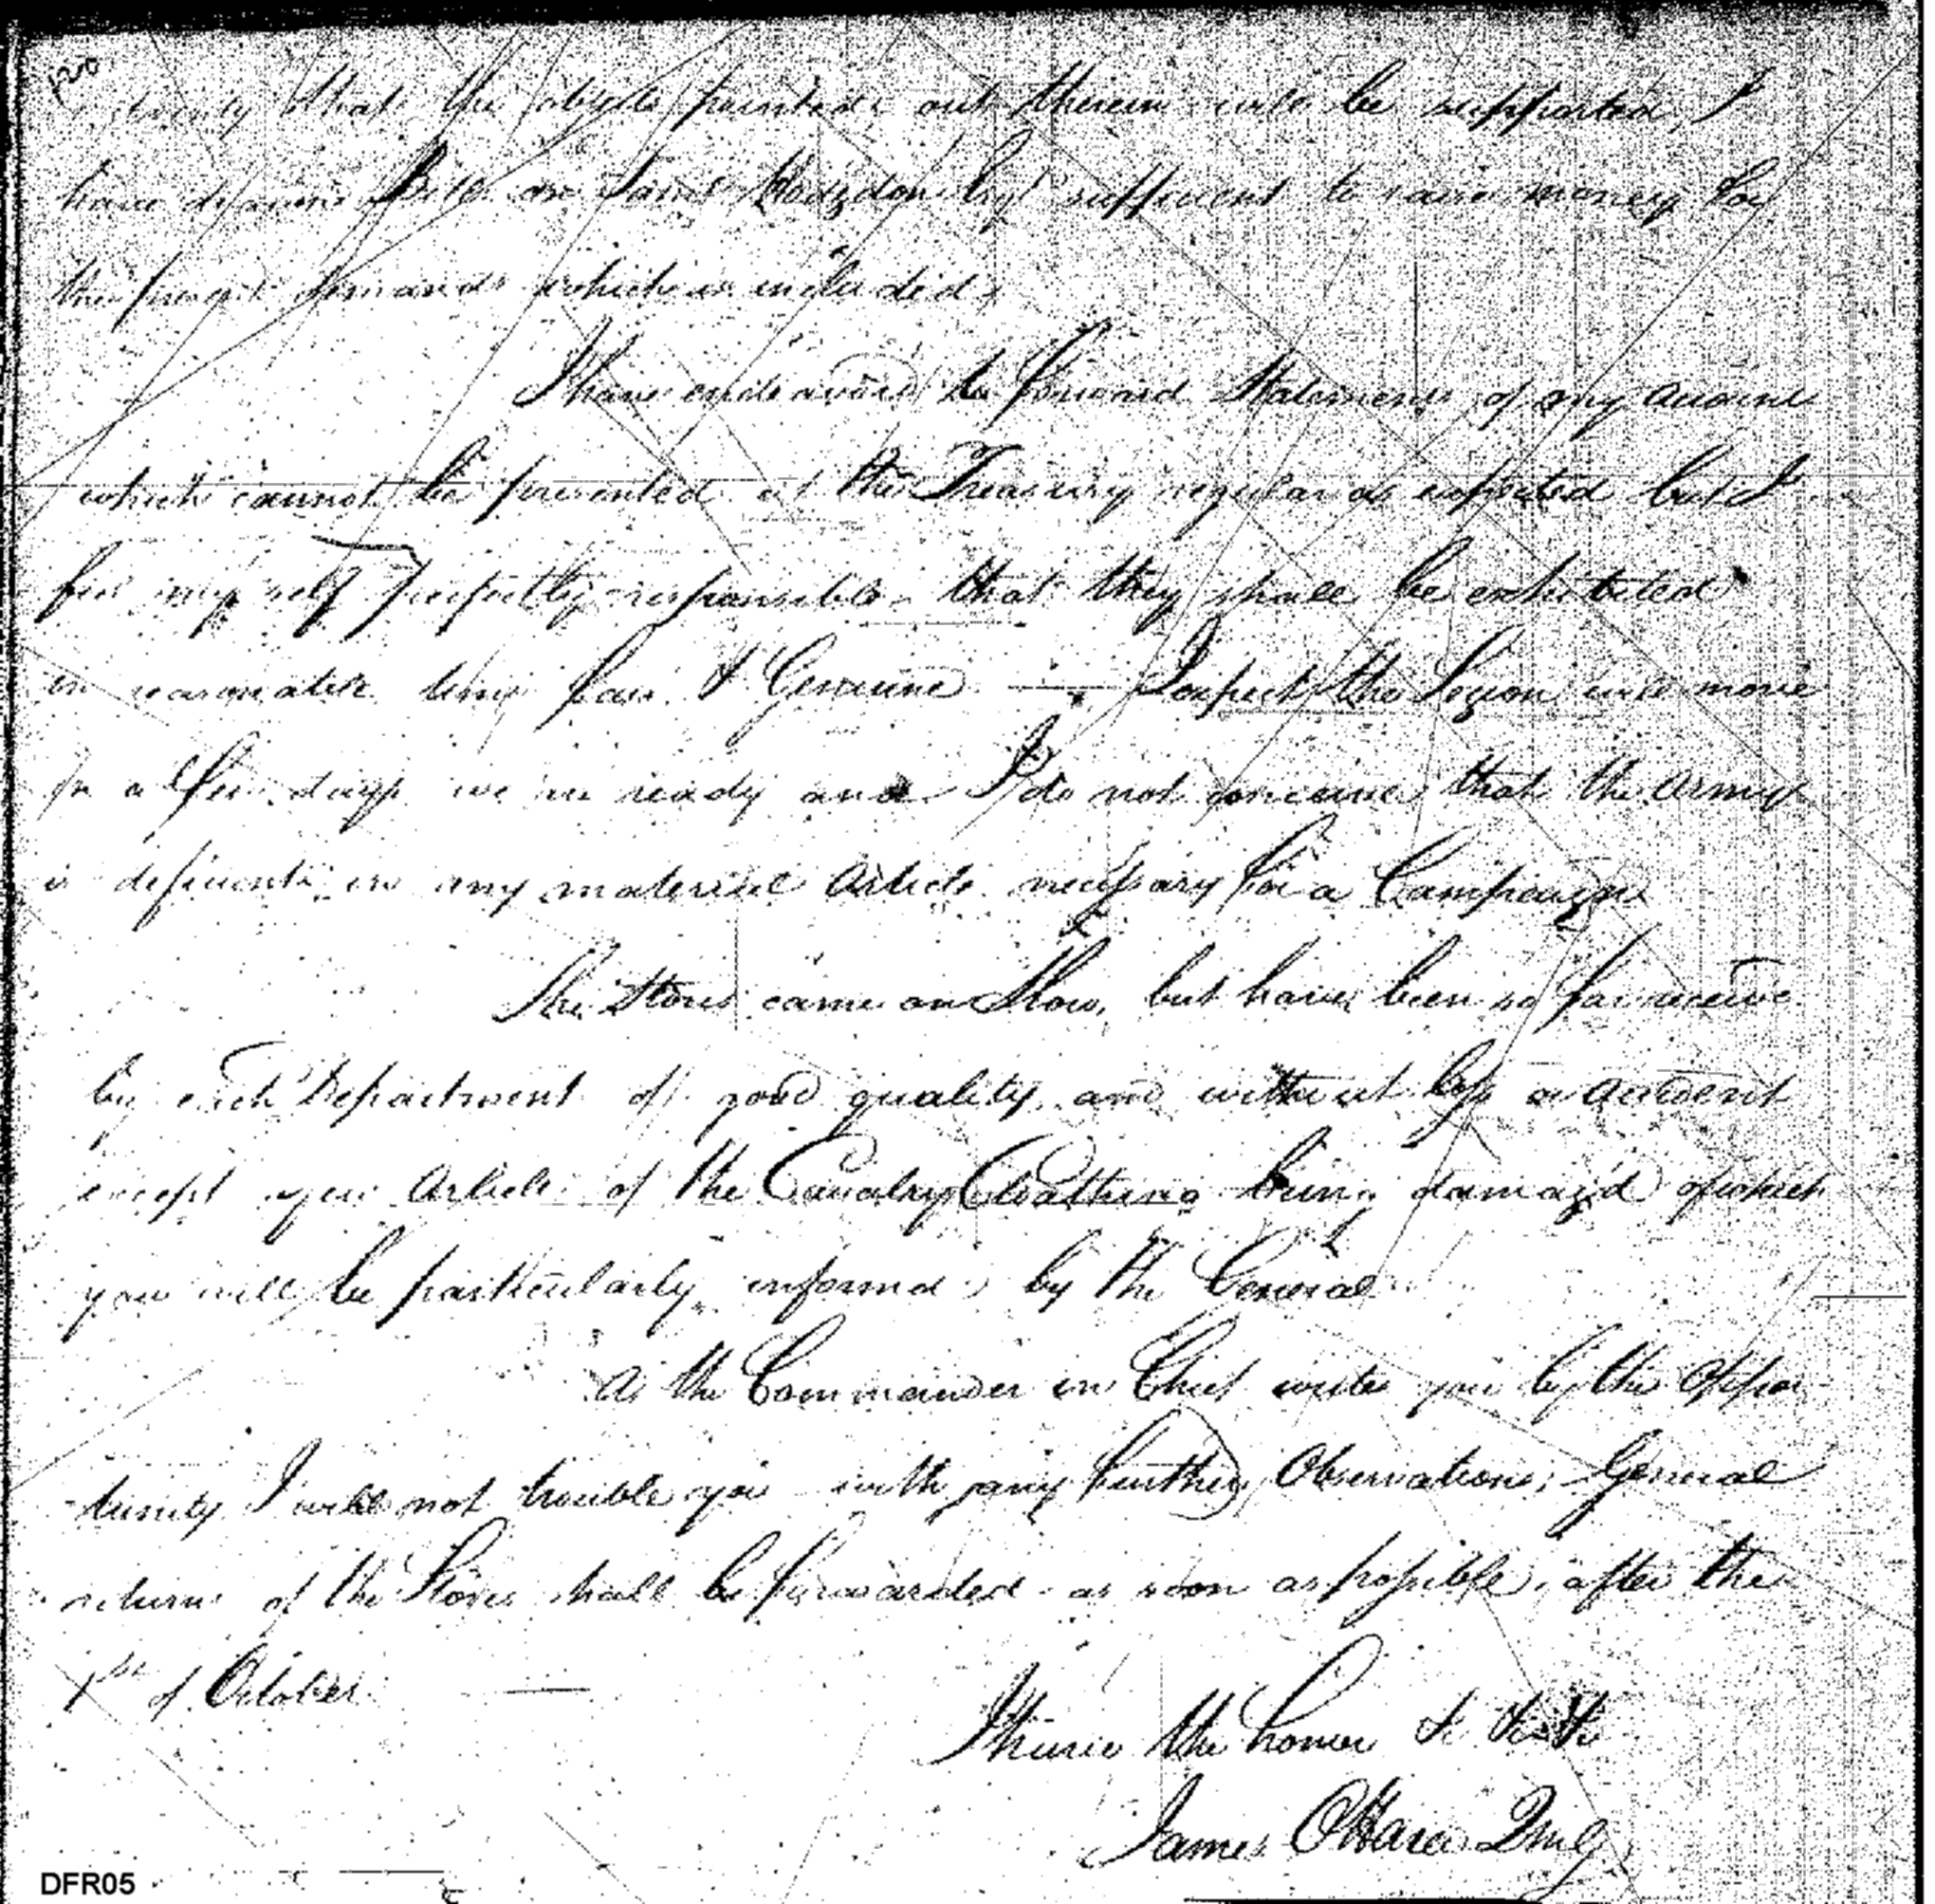 120
that the objects pointed out therein will be supported, I
have drawn Bills on Saml Hodgdon Esqr sufficient to raise money for
the present demands which is included.
I have endeavored to forward Statements of my accounts
which cannot be presented at the Treasury regular as expected but I
feel my self perfectly responsible that they shall be exhibited
in reasonable time fair & Genuine — I expect the Legion will move
in a few days we are ready and I do not conceive that the army
is deficient in any material Article necessary for a Campaign
The Stores came on Slow, but have been so far receive
by each Department of good quality and without loss or accident
except a few Article of the Cavalry Cloathing being damag'd of which
you will be particularly informd by the General
As the Commander in Chief writes you by the Oppor-
tunity I will not trouble you with any further Observations; General
returns of the Stores shall be forwarded as soon as possible, after the
1st of October —
I have the honor & &c &c
James OHara Qmg
DFR05